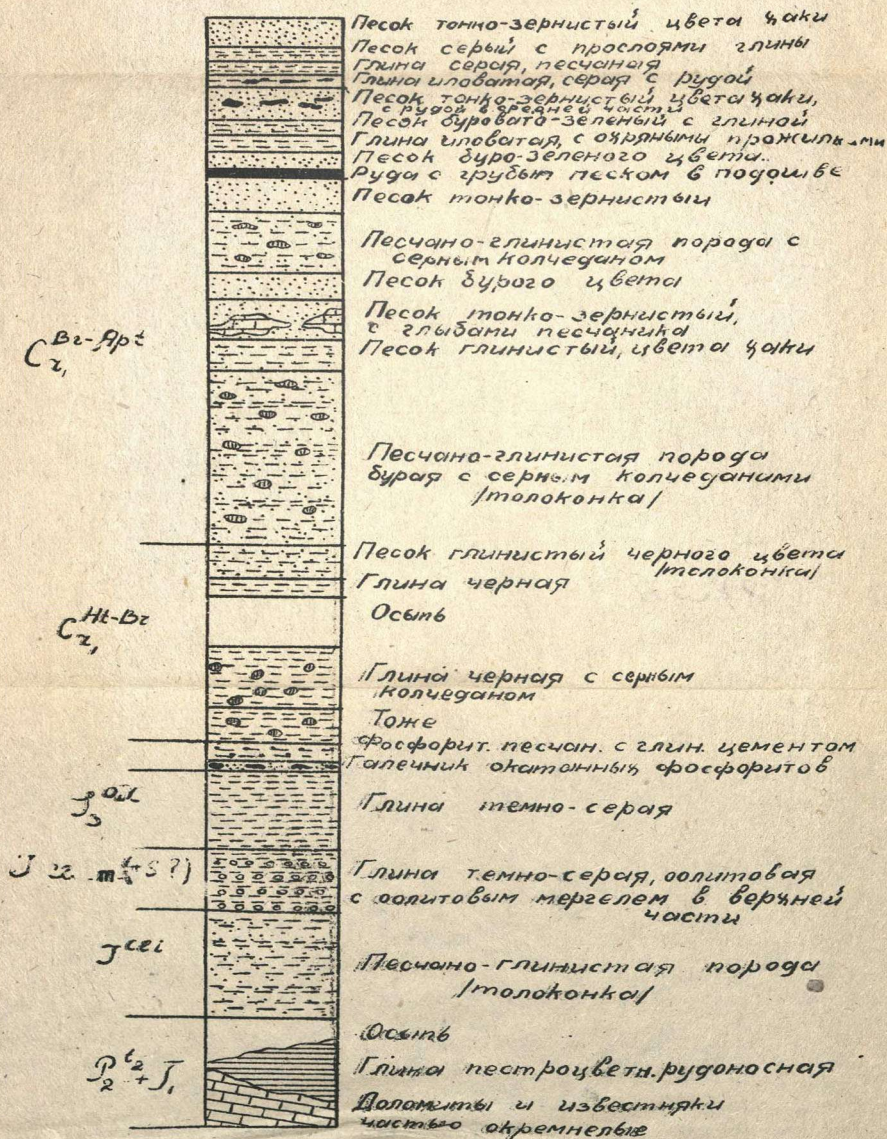 Песок тонко-зернистый цвета хаки
Песок серый с прослоями глины
Глина серая, песчаная
Глина иловатая, серая с рудой
Песок тонко-зернистый цвета хаки,
с рудой в средней части
Песок буровато-зеленый с глиной
Глина иловатая, с охряными прожилками
Песок буро-зеленого цвета
Руда с грубым песком в подошве
Песок тонко-зернистый
Песчано-глинистая порода с
серным колчеданом
Песок бурого цвета
Песок тонко-зернистый,
с глыбами песчаника
Cr₁ Br-Apt
Песок глинистый, цвета хаки
Песчано-глинистая порода
бурая с серным колчеданими
/толоконка/
Песок глинистый черного цвета
/толоконка/
Глина черная
Осыпь
Cr₁ Ht-Br
Глина черная с серным
колчеданом
Тоже
Фосфорит. песчан. с глин. цементом
Галечник окатанных фосфоритов
J₃
Глина темно-серая
Глина темно-серая, оолитовая
с оолитовым мергелем в верхней
части
J
Песчано-глинистая порода
/толоконка/
Осыпь
P₂ t₂ + J₁
Глина пестроцветн. рудоносная
Доломиты и известняки
частью окремнелые